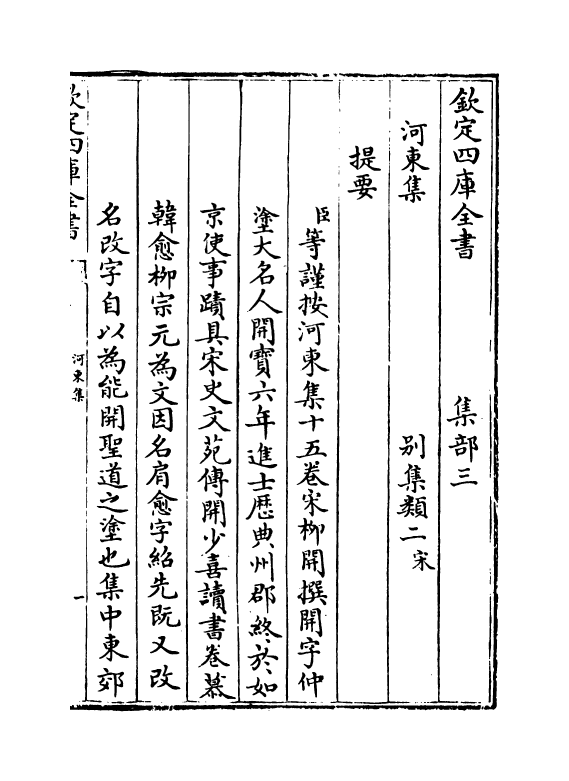 欽定四庫全書 集部三
河東集 别集類二宋
提要
臣等謹按河東集十五卷宋柳開撰開字仲
塗大名人開寶六年進士歷典州郡終於如
京使事蹟具宋史文苑傳開少喜讀書卷慕
韓愈柳宗元為文因名肩愈字紹先既又改
名改字自以為能開聖道之塗也集中東郊
欽定四庫全書
河東集
一